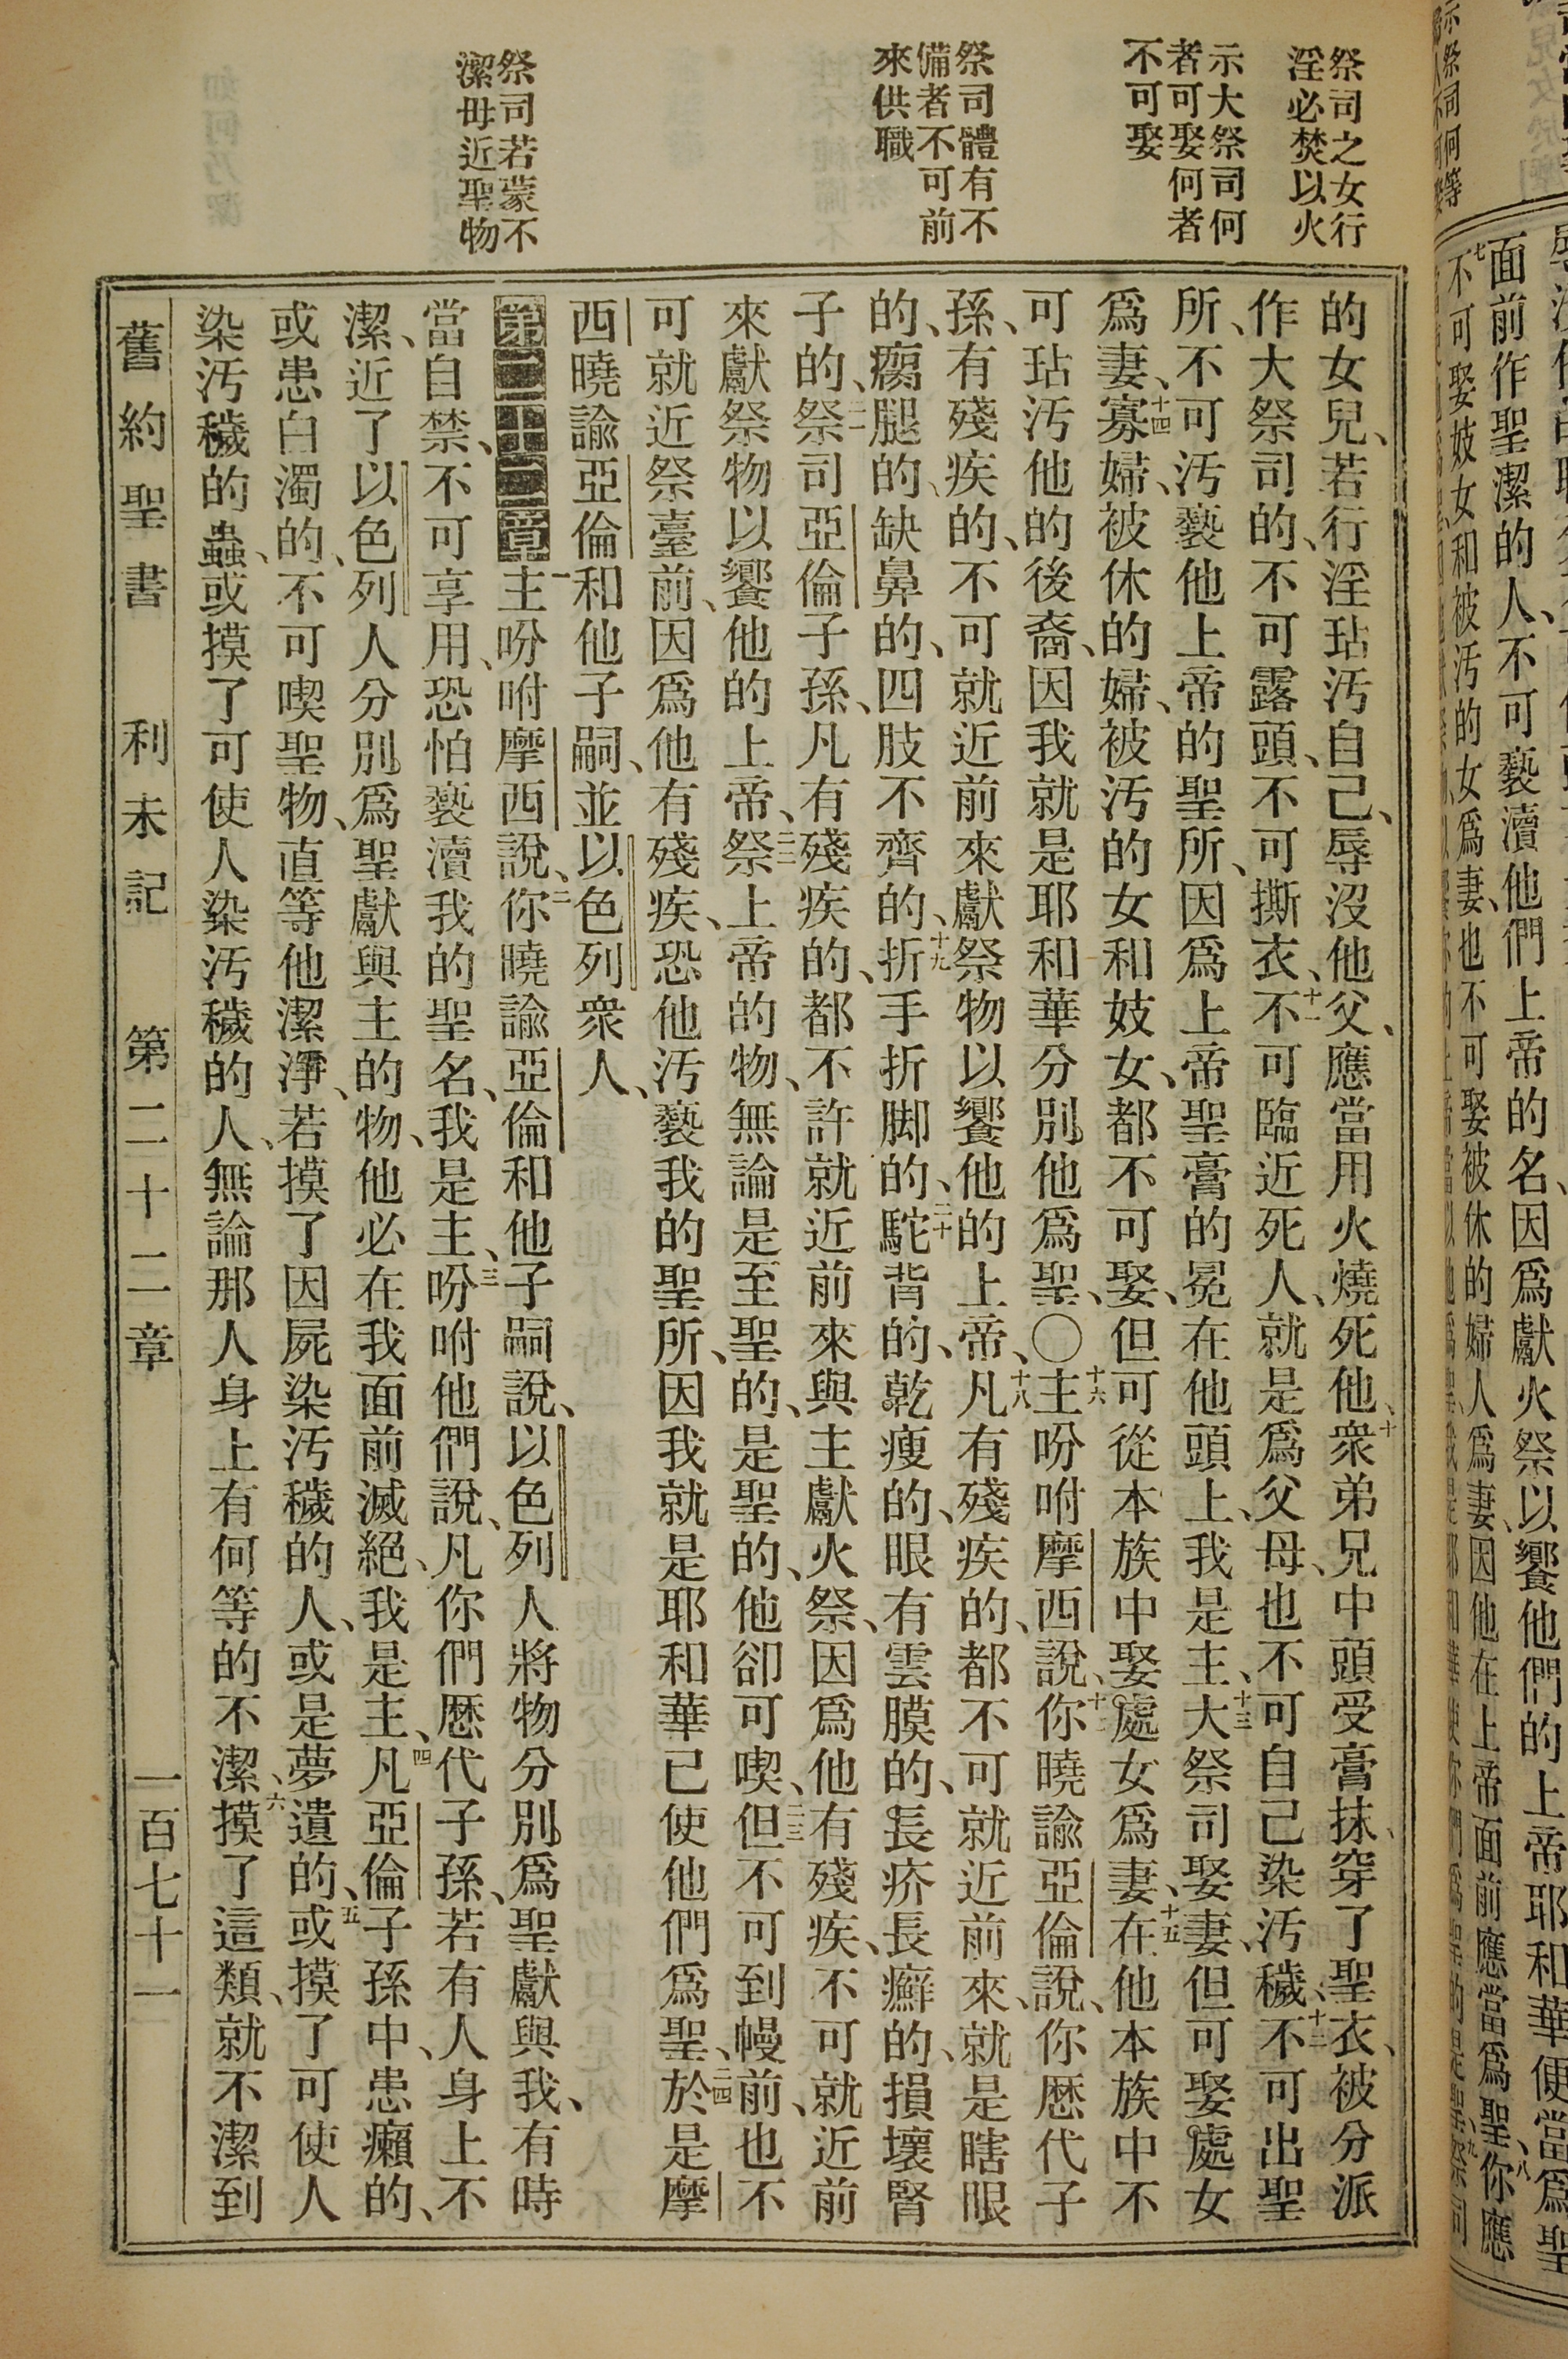 祭司之女行
淫必焚以火
示大祭司何
者可娶何者
不可娶
祭司體有不
備者不可前
來供職
祭司若蒙不
潔毋近聖物
的女兒、若行淫玷污自己、辱沒他父、應當用火燒死他、十衆弟兄中頭受膏抹、穿了聖衣、被分派
作大祭司的、不可露頭、不可撕衣、十一不可臨近死人、就是爲父母、也不可自己染污穢、十二不可出聖
所、不可污褻他上帝的聖所、因爲上帝聖膏的冕在他頭上、我是主、十三大祭司娶妻、但可娶處女
爲妻、十四寡婦、被休的婦、被污的女和妓女、都不可娶、但可從本族中娶處女爲妻、十五在他本族中不
可玷污他的後裔、因我就是耶和華分別他爲聖、〇十六主吩咐摩西說、十七你曉諭亞倫說、你歷代子
孫、有殘疾的、不可就近前來獻祭物以饗他的上帝、十八凡有殘疾的、都不可就近前來、就是瞎眼
的、瘸腿的、缺鼻的、四肢不齊的、十九折手折脚的、二十駝背的、乾瘦的、眼有雲膜的、長疥長癬的、損壞腎
子的、二一祭司亞倫子孫、凡有殘疾的、都不許就近前來與主獻火祭、因爲他有殘疾、不可就近前
來獻祭物以饗他的上帝、二二祭上帝的物、無論是至聖的、是聖的、他卻可喫、二三但不可到幔前、也不
可就近祭臺前、因爲他有殘疾、恐他污褻我的聖所、因我就是耶和華已使他們爲聖、二四於是摩
西曉諭亞倫和他子嗣、並以色列衆人、
第二十二章一主吩咐摩西說、二你曉諭亞倫和他子嗣說、以色列人將物分別爲聖獻與我、有時
當自禁、不可享用、恐怕褻瀆我的聖名、我是主、三吩咐他們說、凡你們歷代子孫、若有人身上不
潔、近了以色列人分別爲聖獻與主的物、他必在我面前滅絕、我是主、四凡亞倫子孫中、患癩的、
或患白濁的、不可喫聖物、直等他潔淨、若摸了因屍染污穢的人、或是夢遺的、五或摸了可使人
染污穢的蟲、或摸了可使人染污穢的人、無論那人身上有何等的不潔、六摸了這類、就不潔到
舊約聖書 利未記 第二十二章 一百七十一